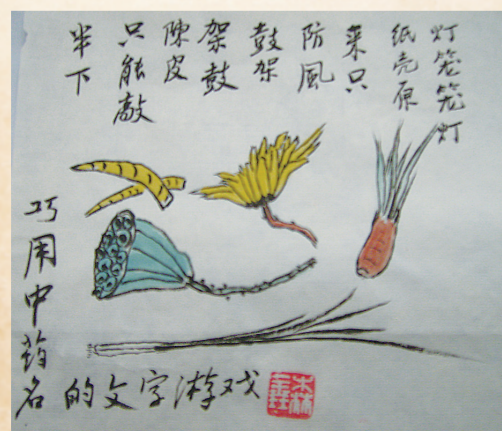 灯笼笼灯
纸壳原
来只
防風
鼓架
架鼓
陳皮
只能敲
半下
巧用中药名
的文字游戏